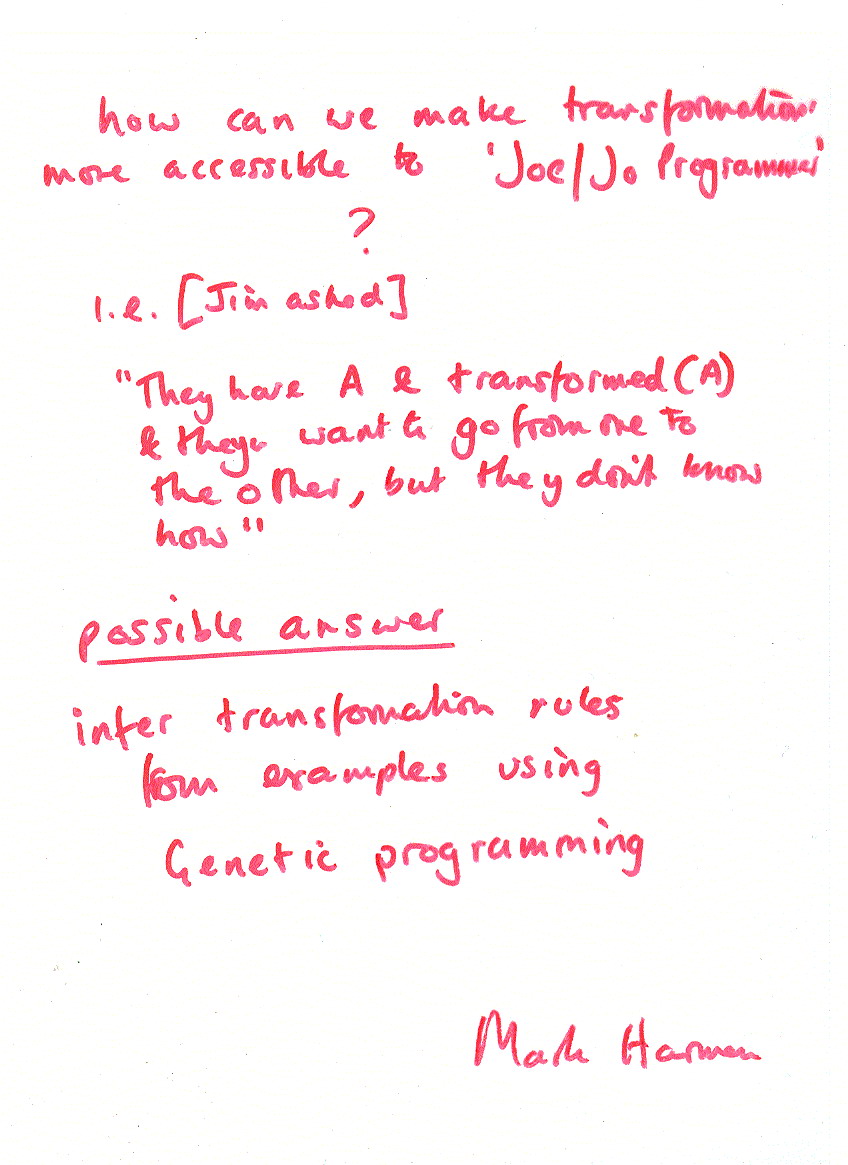 how can we make transformation
more accessible to 'Joe/Jo Programmer'
?
i.e. [Jim asked]
"They have A & transformed(A)
& they want to go from one to
the other, but they don't know
how"
possible answer
infer transfomation rules
from examples using
Genetic programming
Mark Harman